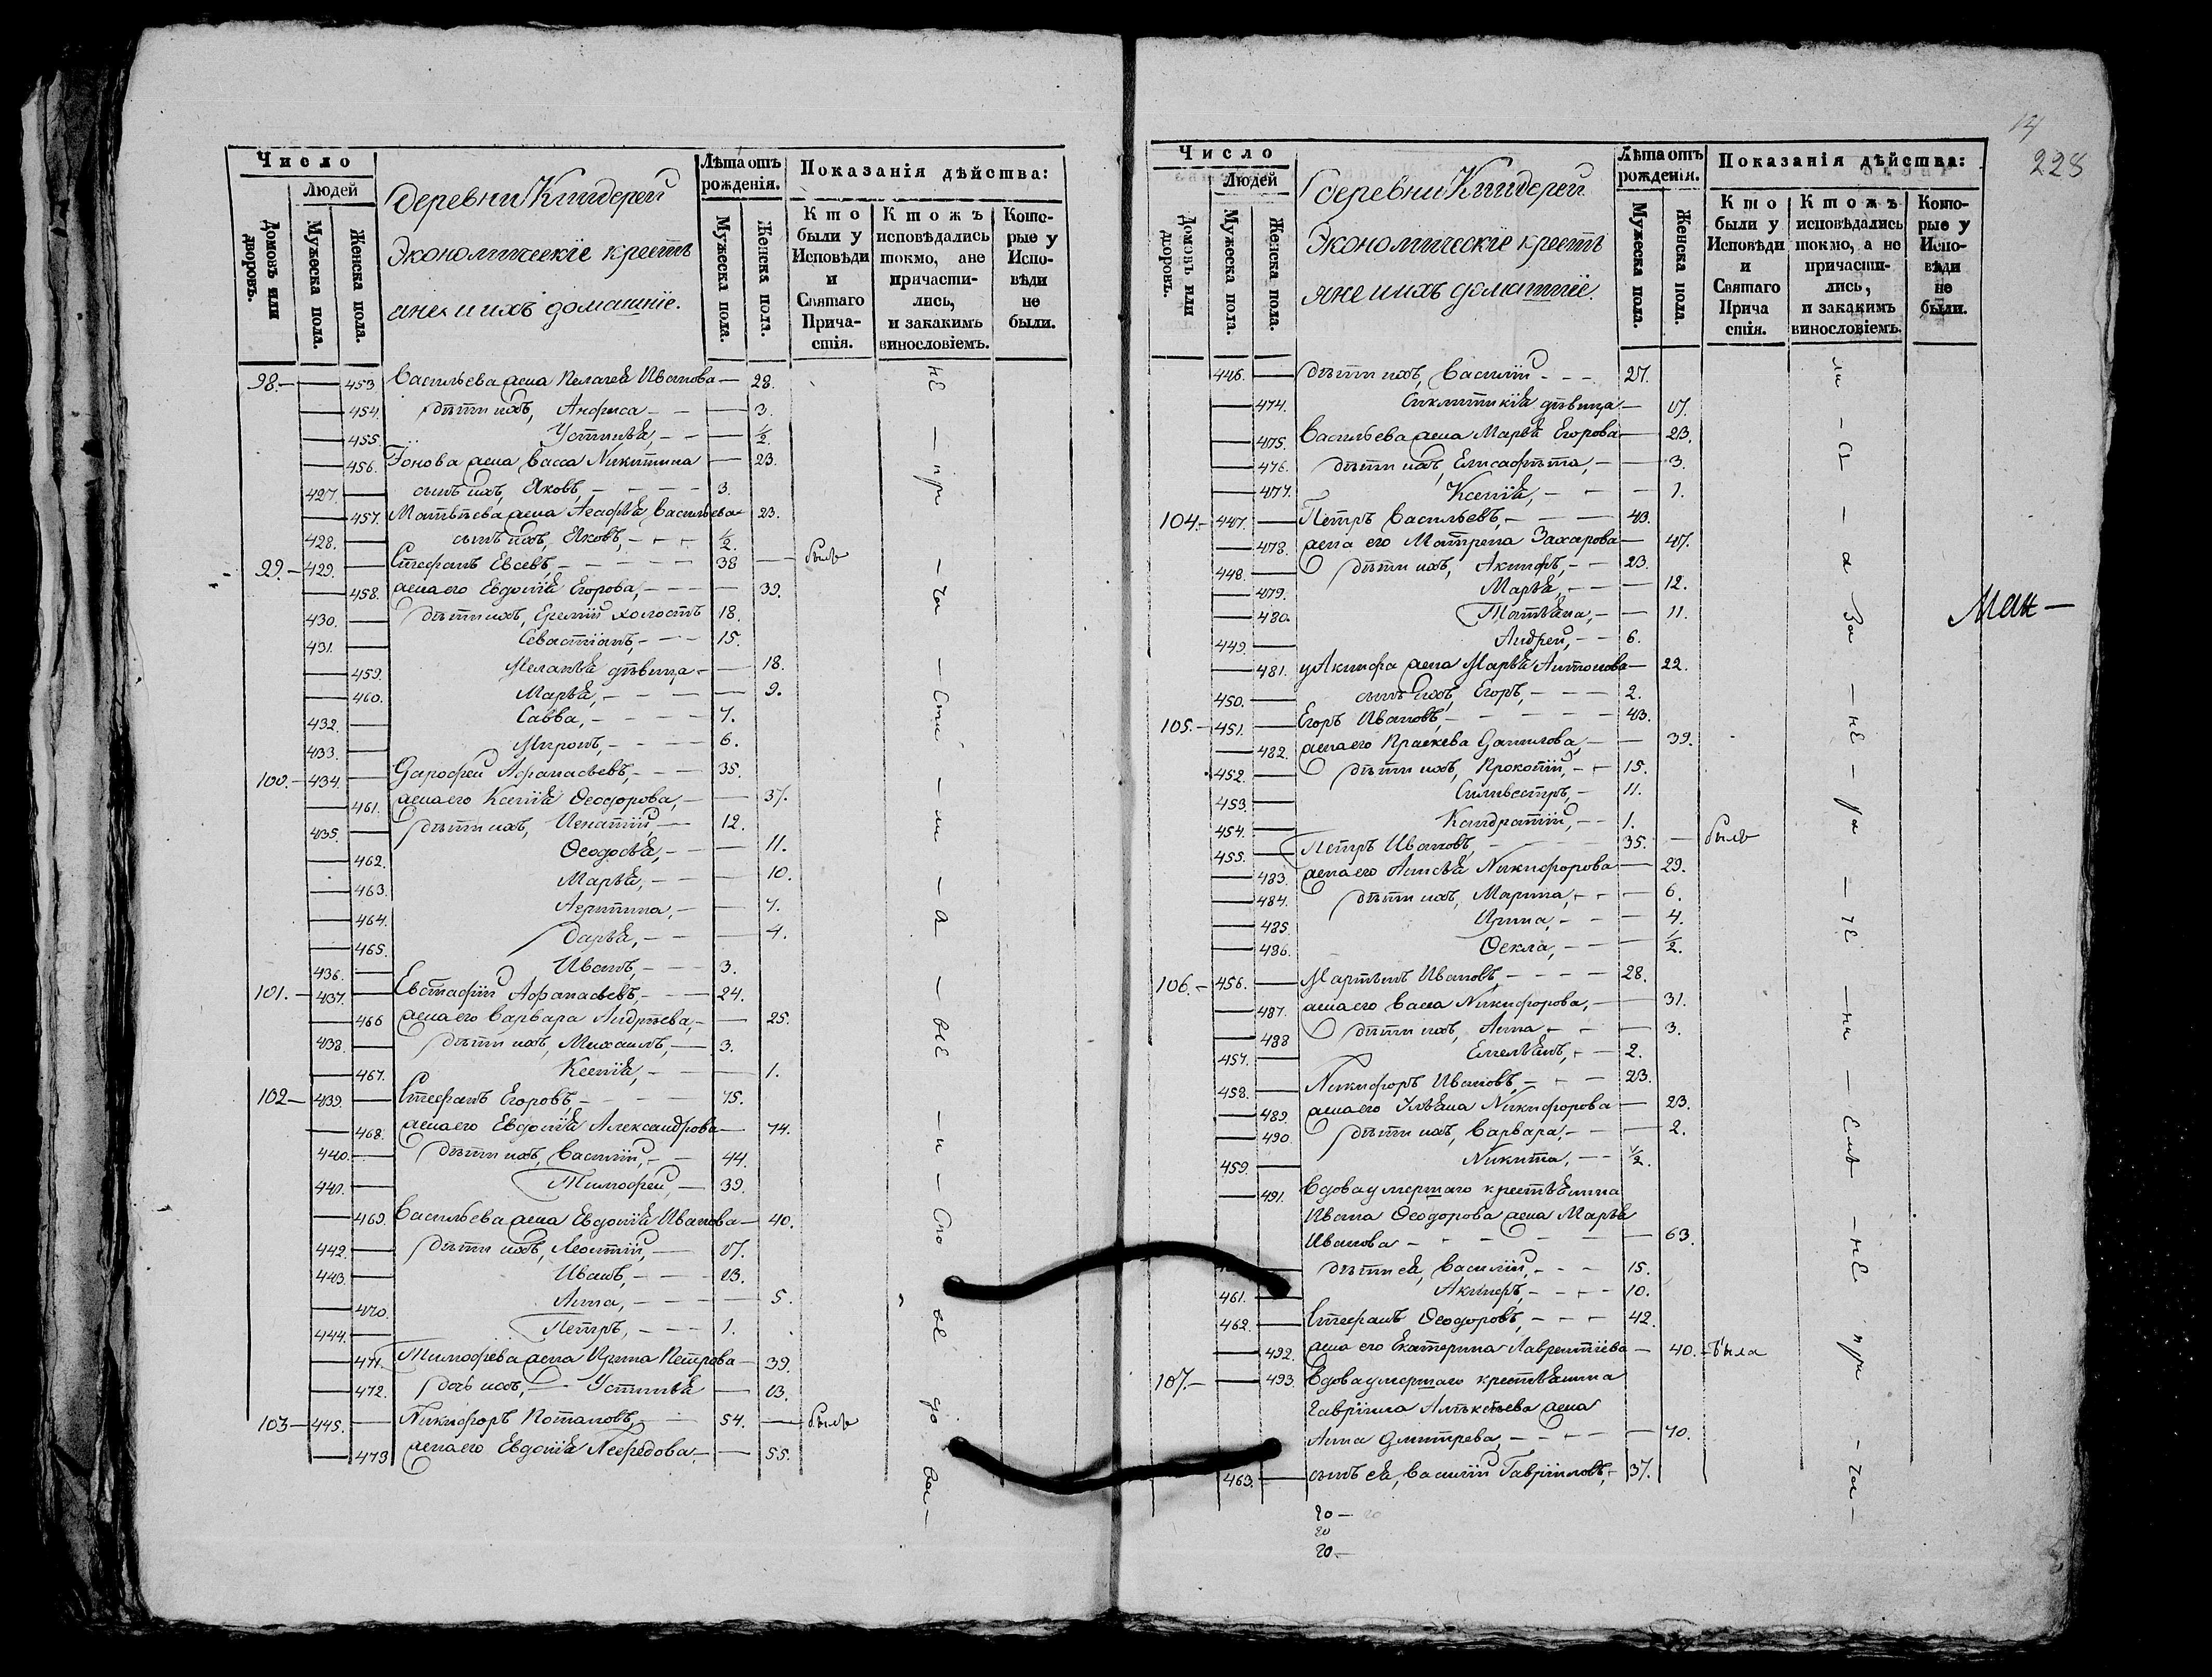 Число
Людей
Домовъ или дворовъ.
Мужеска пола.
Женска пола.
деревни Киндереи
Экономическіе кресть
яне и ихъ домашніе.
Лѣта отъ рожденія.
Мужеска пола.
Женска пола.
Показанія дѣйства:
Кто были у Исповѣди и Святаго Причастія.
Ктожъ исповѣдались токмо, а не причастились, и закакимъ винословіемъ.
Которые у Исповѣди не были.
98. — 453 Васильева жена Пелагея Иванова — 28.
454 дѣти ихъ, Анфиса — 3.
455. Устинья, — ½.
456. Іонова жена Васса Никитина — 23.
427. сынъ ихъ, Яковъ, — 3.
457. Матвѣева жена Агафья Васильева 23.
428. сынъ ихъ, Яковъ, — ½.
99. — 429. Стефанъ Евсевъ, — 38 — былъ
458. жена его Евдокія Егорова, — 39.
430. дѣти ихъ, Еремій холостъ 18.
431. Севастіанъ, — 15.
459. Меланья дѣвица — 18.
460. Марья, — 9.
432. Савва, — 7.
433. Миронъ, — 6.
100. — 434. Дарофей Афанасьевъ, — 35.
461. жена его Ксенія Феодорова, — 37.
435. дѣти ихъ, Игнатій, — 12.
462. Феодосья, — 11.
463. Марья, — 10.
464. — 7.
465. Дарья, — 4.
436. Иванъ, — 3.
101. — 437. Евстафій Афанасьевъ, — 24.
466 жена его Варвара Андрѣева, — 25.
438. дѣти ихъ, Михаилъ, — 3.
467. Ксенія, — 1.
102 — 439. Стефанъ Егоровъ, — 75.
468. жена его Евдокія Александрова — 74.
440. дѣти ихъ, Василій, — 44.
441. Тимофей, — 39.
469. Васильева жена Евдокія Иванова — 40.
442. дѣти ихъ, Леонтій, — 17.
443. Иванъ, — 13.
470. Анна, — 5.
444. Петръ, — 1.
471. Тимофѣева жена Ирина Петрова — 39.
472. дочь ихъ, — Устинья — 13.
103 — 445. Никифоръ Потаповъ, — 54. — былъ
473 жена его Евдокія — 55.
не — при — ча — сти — ли — а — вые — и — спо ве до ва —
14
228
Число
Людей
Домовъ или дворовъ.
Мужеска пола.
Женска пола.
деревни Киндереи
Экономическіе кресть
яне и ихъ домашніе.
Лѣта отъ рожденія.
Мужеска пола.
Женска пола.
Показанія дѣйства:
Кто были у Исповѣди и Святаго Причастія.
Ктожъ исповѣдались токмо, а не причастились, и закакимъ винословіемъ.
Которые у Исповѣди не были.
446. дѣти ихъ, Василій — 27.
474. Сиклитикія дѣвица — 17.
475. Васильева жена Марья Егорова — 23.
476. дѣти ихъ, Елисафѣта, — 3.
477. Ксенія, — 1.
104. — 447. Петръ Васильевъ, — 43.
478. жена его Матрена Захарова — 47.
448. дѣти ихъ, Акинфъ, — 23.
479. Марья, — 12.
480. Татьяна, — 11.
449. Андрей, — 6.
481. у Акинфа жена Марья Антонова — 22.
450. сынъ ихъ, Егоръ, — 2.
105. — 451. Егоръ Ивановъ, — 43.
482. жена его Праскева Данилова, — 39.
452. дѣти ихъ, Прокопій, — 15.
453. Сильвестръ, — 11.
454. Кандратій, — 1.
455. Петръ Ивановъ, — 35. — былъ
483. жена его Анисья Никифорова — 29.
484. дѣти ихъ, Марина, — 6.
485. Ирина, — 4.
486. Фекла, — ½.
106. — 456. Мартынъ Ивановъ, — 28.
487. жена его Васса Никифорова, — 31.
488 дѣти ихъ, Анна, — 3.
457. Емельянъ, — 2.
458. Никифоръ Ивановъ, — 23.
489. жена его Ульяна Никифорова — 23.
490. дѣти ихъ, Варвара, — 2.
459. Никита, — ½.
491. Вдова умершаго крестьянина
Ивана Феодорова жена Марья
Иванова — 63.
дѣти ея, Василій, — 15.
461. — 10.
462. Стефанъ Феодоровъ, — 42.
492. жена его Екатерина Лаврентіева — 40. — была
107. — 493. Вдова умершаго крестьянина
Гавріила Алѣксѣева жена
Анна Дмитрева, — 70.
463. сынъ ея, Василій Гавріиловъ, — 37.
ли — сь — а за — не — ра — че — ни — емъ — не при — ча —
Ман —
20 —
20
20 —